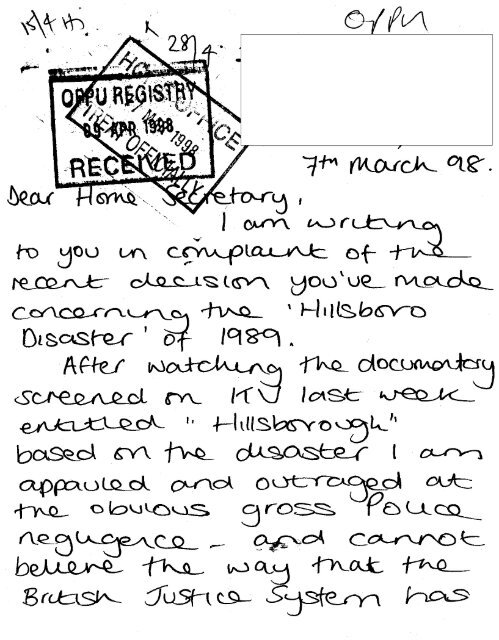 15/4
OPPU
28/4
HOME OFFICE
OPPU REGISTRY
09 APR 1998
MAR 1998
TREAT OFFICIALLY
RECEIVED
7th March 98.
Dear Home Secretary,
I am writing
to you in complaint of the
recent decision you've made
concerning the 'Hillsboro
Disaster' of 1989.
After watching the documentary
screened on ITV last week
entitled "Hillsborough"
based on the disaster I am
appauled and outraged at
the obvious gross Police
neglugence - and cannot
believe the way that the
British Justice System has